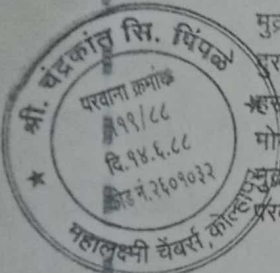 श्री. चंद्रकांत सि. पिंपळे
परवाना क्रमांक
११९/८८
दि.१४.६.८८
कोड नं.२६०१०३२
महालक्ष्मी चेंबर्स, कोल्हापूर